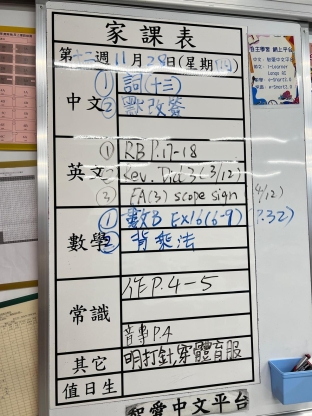 家課表
第十二週 11月28日(星期二)
中文
① 詞(十三)
② 默改簽
英文
① RB P.17-18
② Rev. Dict 3 (3/12)
③ FA(3) scope sign
4/12)
數學
① 數文B EX16(6-9) P.32)
② 背乘法
常識
作P.4-5
音專P.4
其它 明打針,穿體育服
值日生
智愛中文平台
自主學習 網上平台